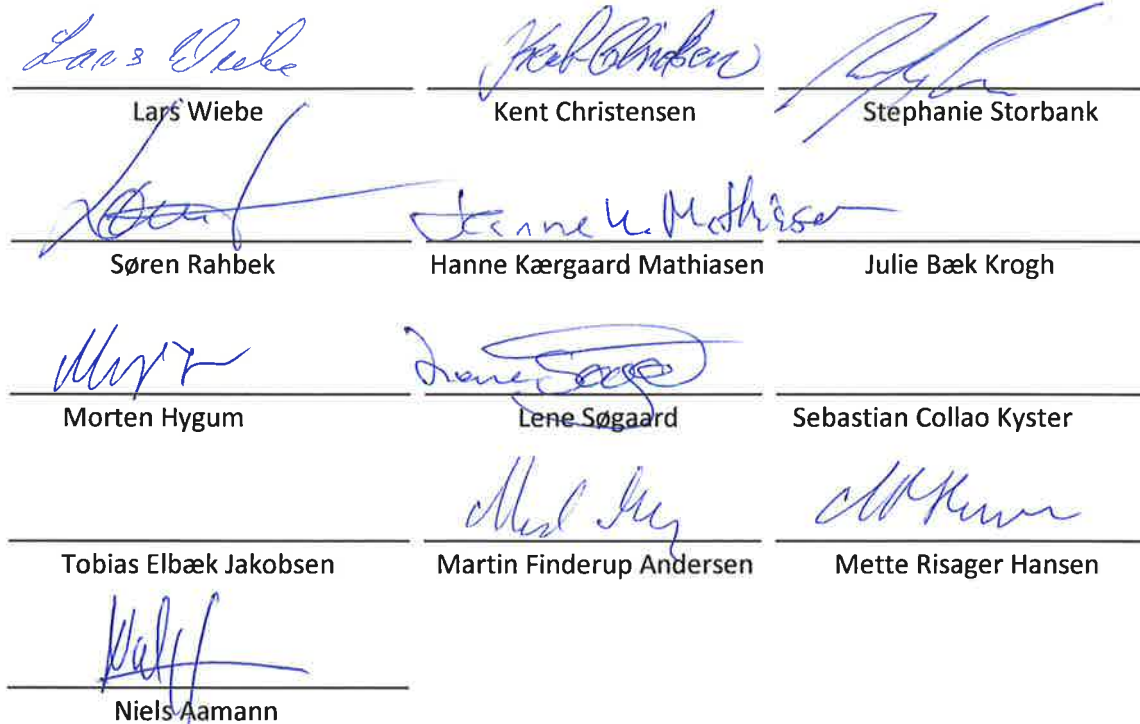 Lars Wiebe
Lars Wiebe Kent Christensen Stephanie Storbank
Hanne K. Mathiasen
Søren Rahbek Hanne Kærgaard Mathiasen Julie Bæk Krogh
Morten Hygum Lene Søgaard Sebastian Collao Kyster
Tobias Elbæk Jakobsen Martin Finderup Andersen Mette Risager Hansen
Niels Aamann